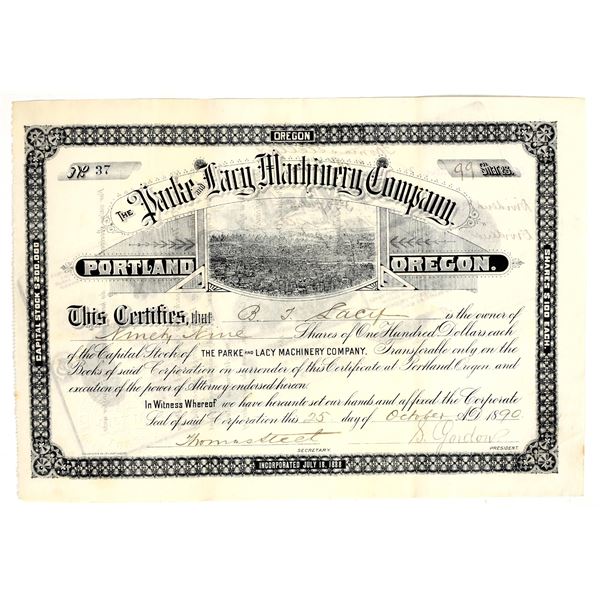 OREGON
No 37
99 SHARES
THE Parke AND Lacy Machinery Company.
PORTLAND OREGON.
CAPITAL STOCK $200,000
SHARES $100 EACH.
This Certifies, that B. T. Lacy is the owner of
Ninety Nine Shares of One Hundred Dollars each
of the Capital Stock of THE PARKE AND LACY MACHINERY COMPANY. Transferable only on the
Books of said Corporation on surrender of this Certificate at Portland Oregon and
execution of the power of Attorney endorsed hereon.
In Witness Whereof we have hereunto set our hands and affixed the Corporate
Seal of said Corporation this 25 day of October AD 1890
Thomas Steel
SECRETARY.
D. Gordon
PRESIDENT.
INCORPORATED JULY 18, 1888